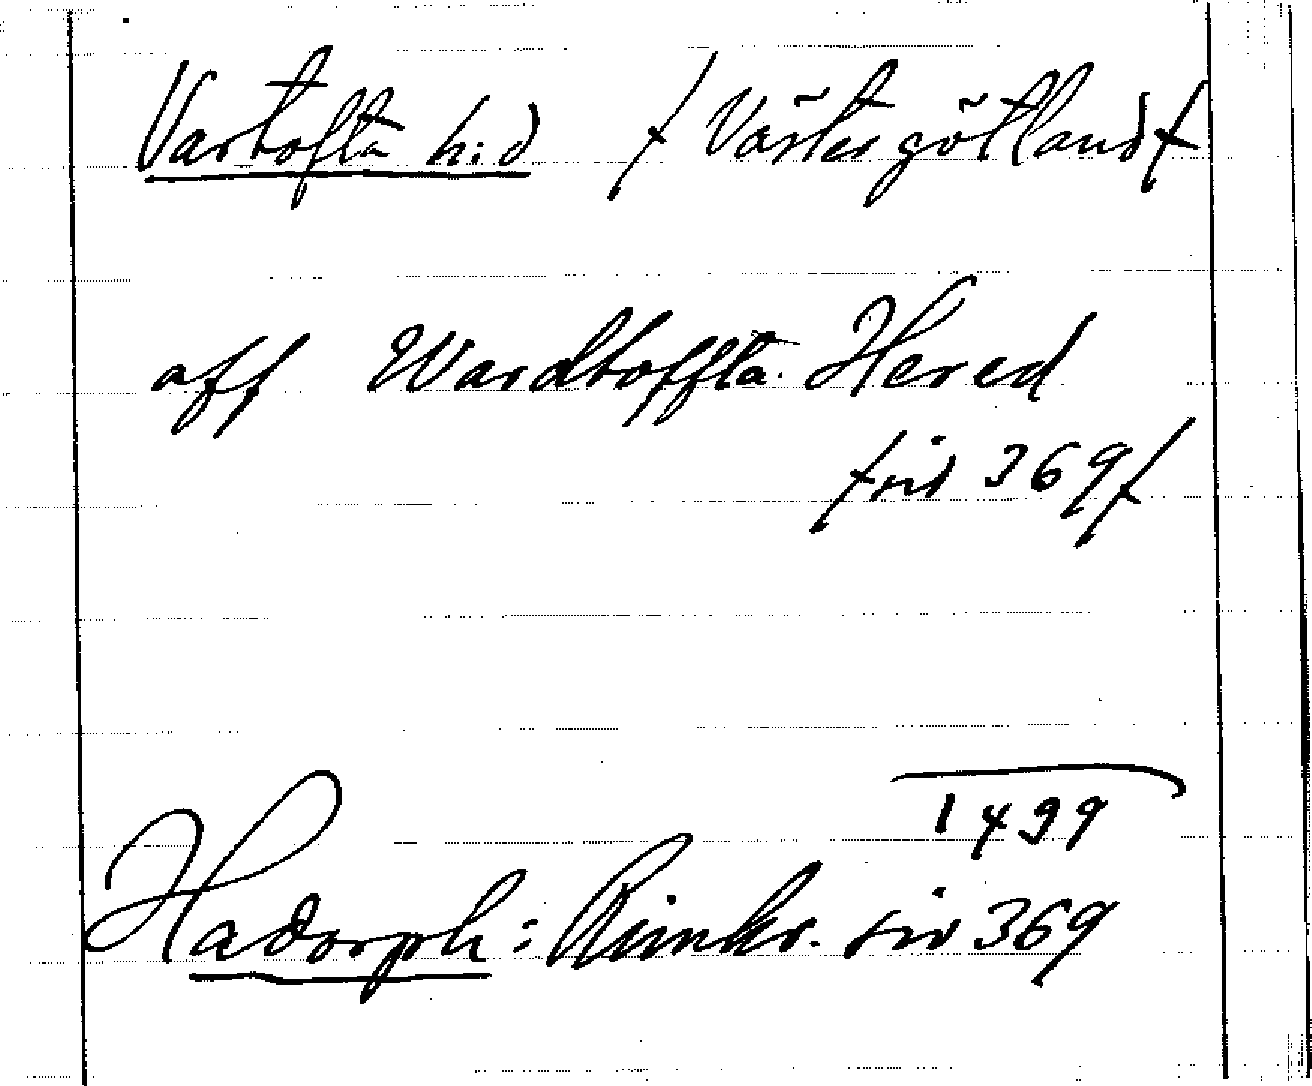 Vartofta h:d / Västergötland /
aff Wardtoffta Hered
/ sid 369 /
1499
Hadorph: Rimkr. sid 369